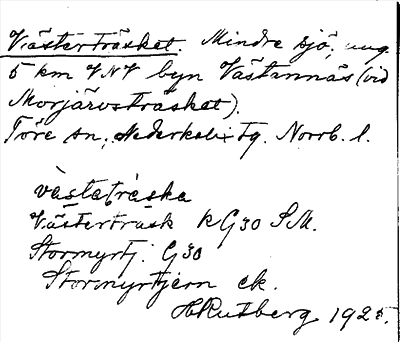 Västerträsket. Mindre sjö, ung.
5 km VNV byn Västannäs (vid
Morjärvsträsket).
Töre sn, Nederkalix tg. Norrb. l.
vàstatráska
Västertrask kG30 S.M.
Stormyrtj. G30
Stormyrtjern ek.
HRutberg 1925.